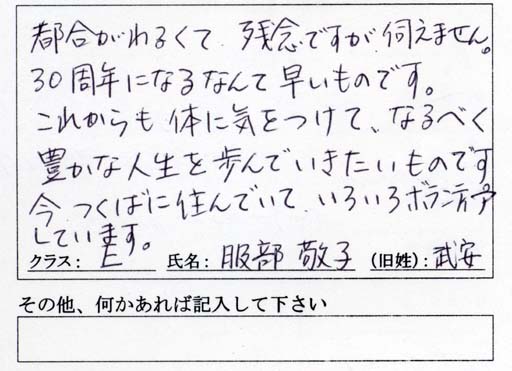 都合がわるくて、残念ですが伺えません。
30周年になるなんて早いものです。
これからも体に気をつけて、なるべく
豊かな人生を歩んでいきたいものです
今、つくばに住んでいて、いろいろボランティア
しています。
クラス: E 氏名: 服部 敬子 (旧姓): 武安
その他、何かあれば記入して下さい